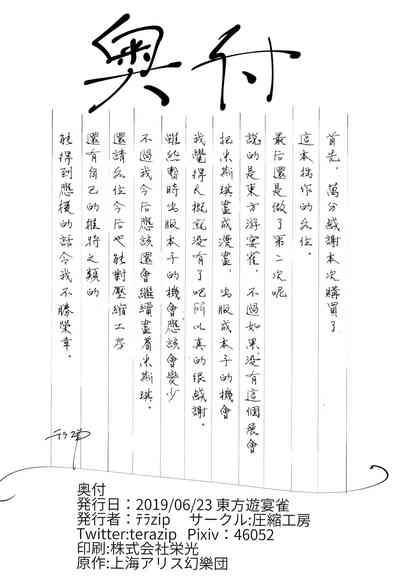 奥付
首先，萬分感謝本次購買了
這本拙作的各位。
最后還是做了第二次呢
說的是東方游宴雀，不過如果沒有這個展會
把米斯琪畫成漫畫，出版成本子的機會
我覺得大概就沒有了吧所以真的很感謝。
雖然暫時出版本子的機會應該會變少
不過我今后應該還會繼續畫着米斯琪。
還請各位今后也能對壓縮工房
還有自己的推特之類的
能得到應援的話令我不勝榮幸。
ﾃﾗzip
奥付
発行日：2019/06/23 東方遊宴雀
発行者：ﾃﾗzip　サークル:圧縮工房
Twitter:terazip　Pixiv：46052
印刷:株式会社栄光
原作:上海アリス幻樂団